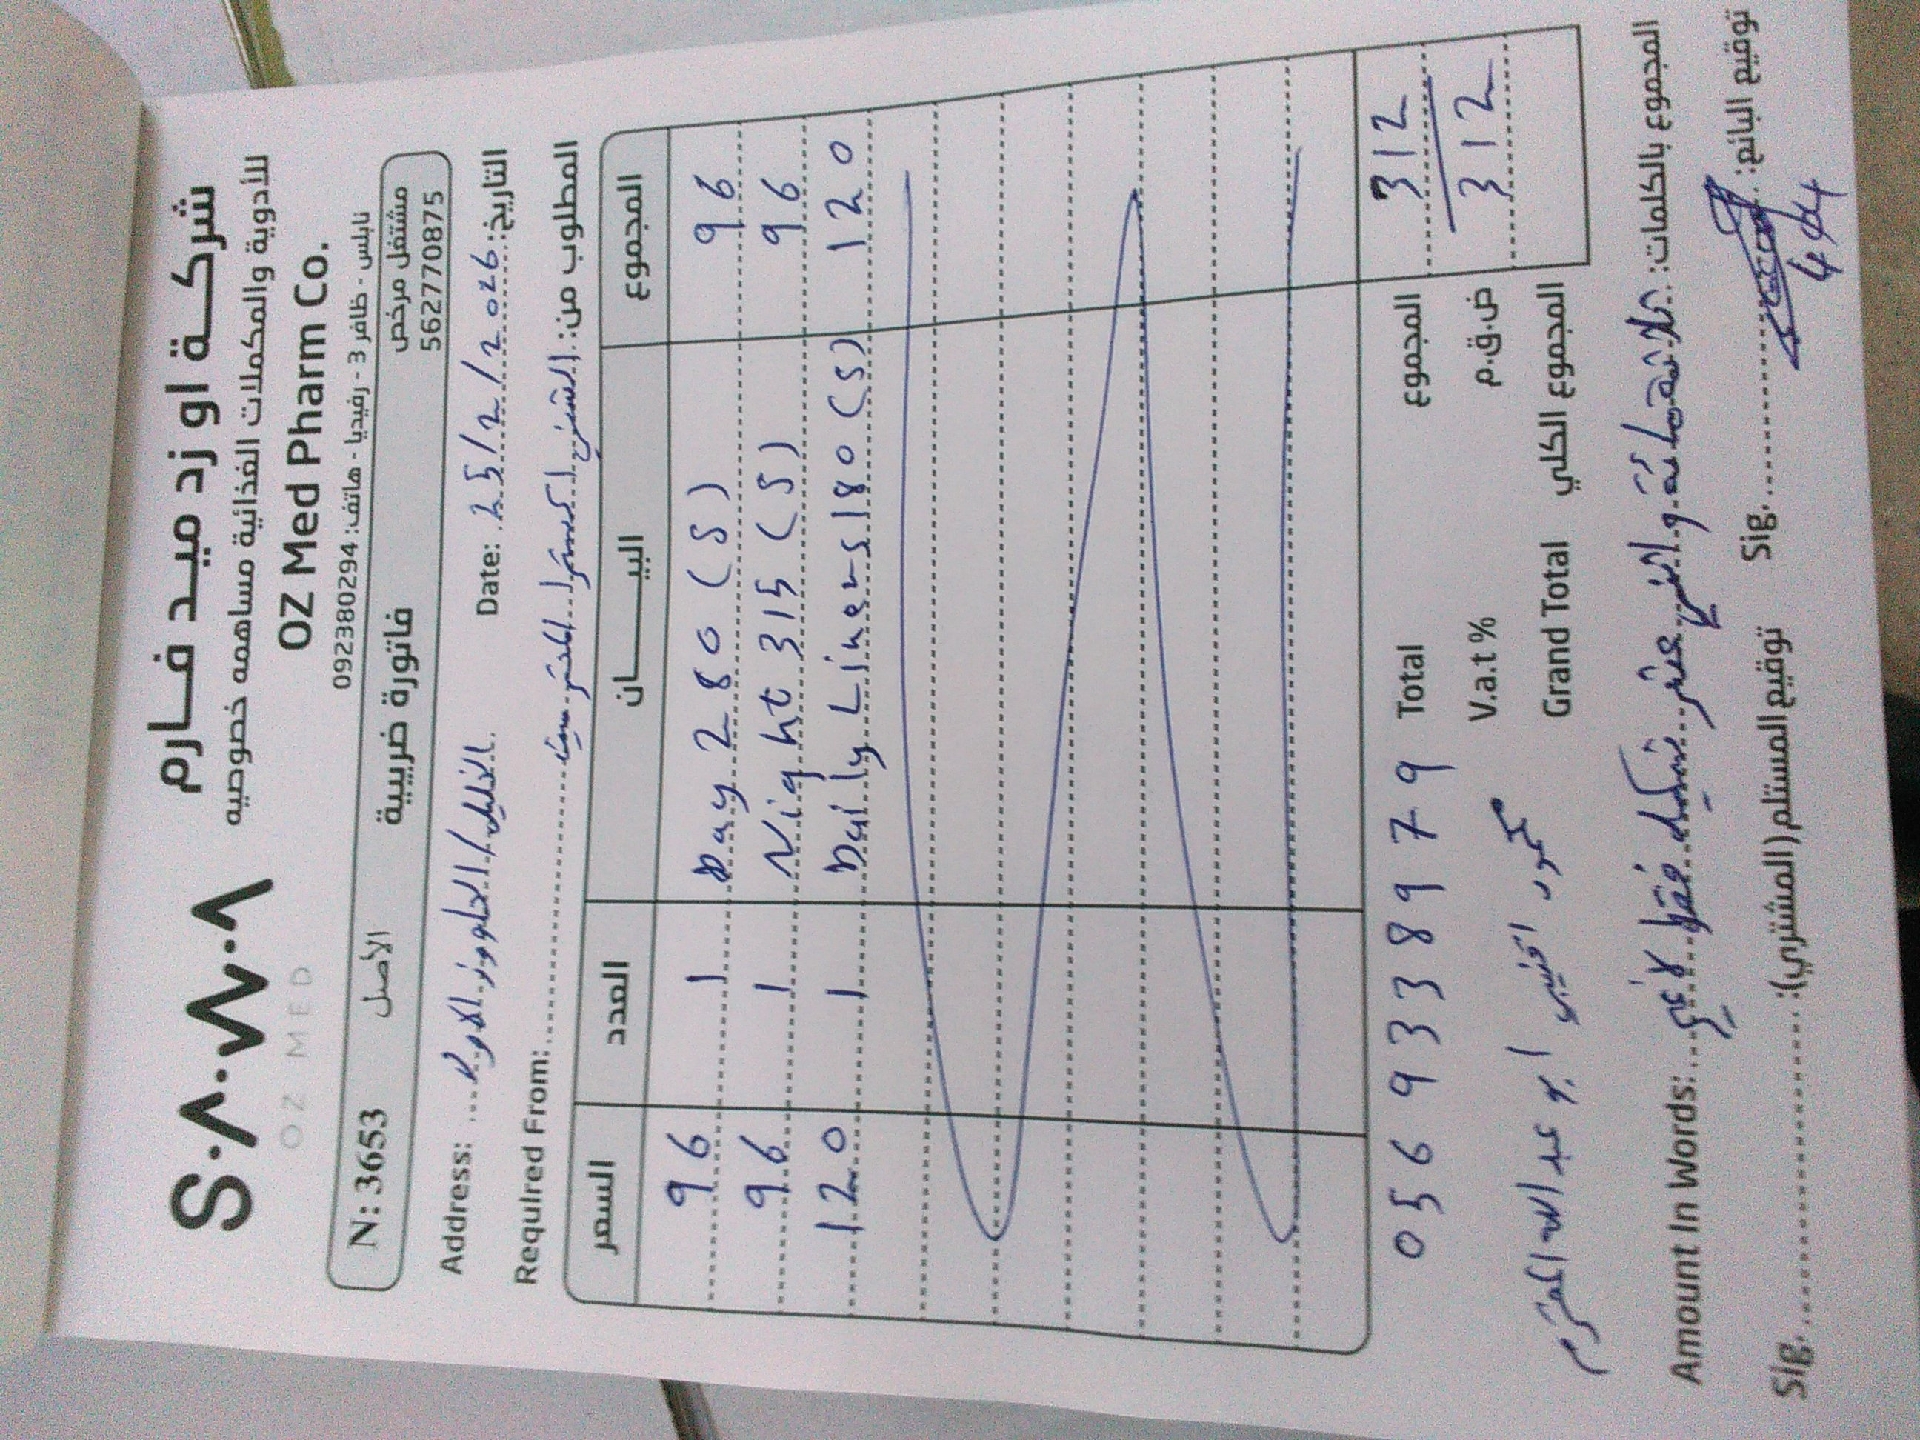 S.Λ.W.Λ
OZ MED
شركة او زد ميد فارم
للأدوية والمكملات الغذائية مساهمه خصوصيه
OZ Med Pharm Co.
نابلس - ظافر 3 - رفيديا - هاتف: 092380294
N: 3653 الأصل فاتورة ضريبية مشتغل مرخص
562770875
Address: الخليل / Date: 25/2/2026 التاريخ:
Required From: المطلوب من:
السعر العدد البيــــــان المجموع
96 1 Day 280 (S) 96
96 1 Night 315 (S) 96
120 1 Daily Liners 180 (S) 120
0569338979 Total المجموع 312
V.a.t % ض.ق.م 312
محمود ابو عبد الله المحترم
Grand Total المجموع الكلي
Amount In Words: ثلاثمائة و اثني عشر شيكل فقط لا غير المجموع بالكلمات:
Sig. توقيع المستلم (المشتري): Sig. توقيع البائع: